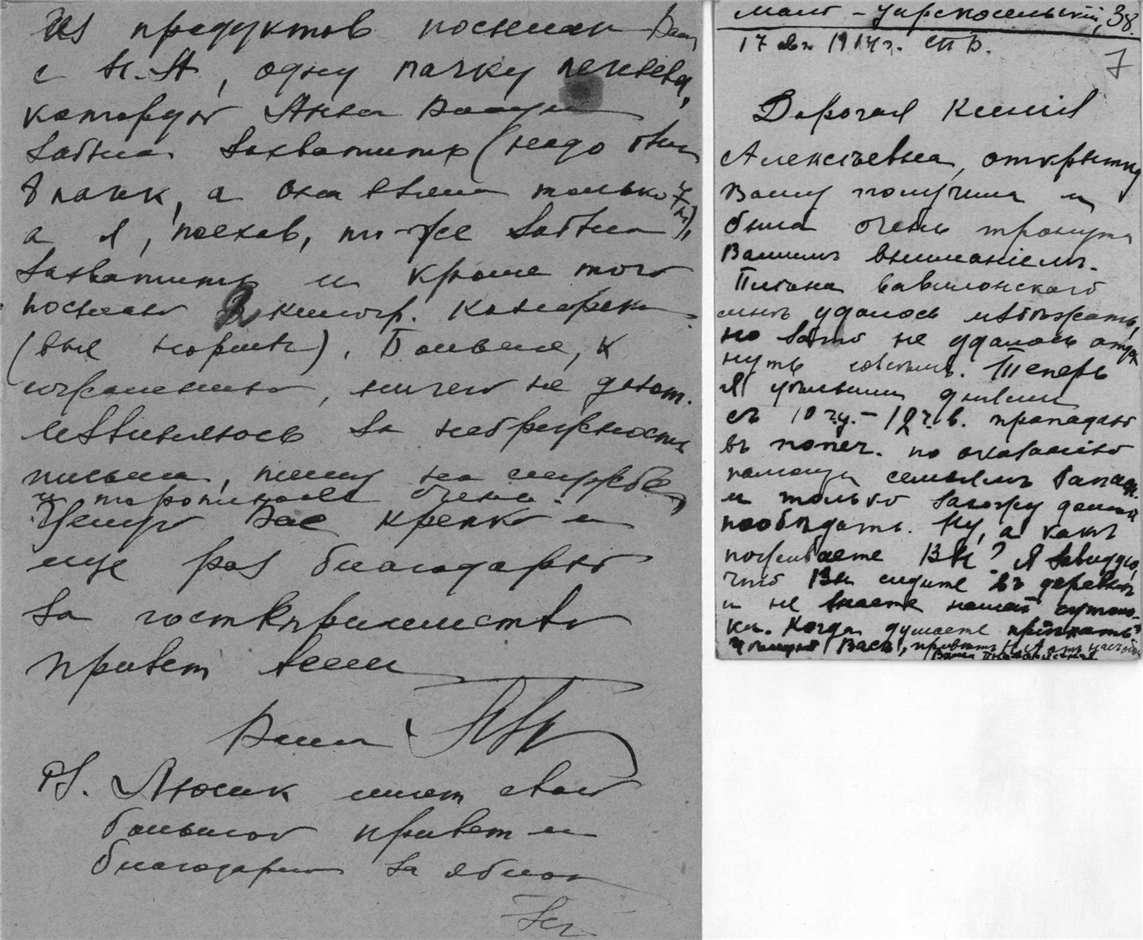 Из продуктов посылаю Вам
с Н.А, одну пачку печенья,
которую Анна
забыла захватить (надо было
8 пачек, а она взяла только 7 п),
а я, поехав, то-же забыла
захватить и кроме того
посылаю 2 килогр. Канифоли
(вне нормы). Больше, к
сожалению, ничего не дают.
Извиняюсь за небрежность
письма, пишу на службе,
и тороплюсь очень.
Целую Вас крепко и
еще раз благодарю
за гостеприимство
привет всем
Ваша
PS. Люсик шлет свой
большой привет и
благодарит за яблоки
Мало-Царскосельский, 38.
17 авг 1914г. СПБ.
7
Дорогая
Алексеевна, открытку
Вашу получила и
была очень тронута
Вашимъ вниманіемъ.
Плена вавилонскаго
мнѣ удалось избѣжать,
но зато не удалось отдох
нуть совсѣмъ. Теперь
я цѣлыми днями
съ 10 ч.у.-10 ч.в. пропадаю
въ попеч. по оказанію
помощи семьямъ запасн
и только захожу домой
пообѣдать. Ну, а какъ
поживаете Вы? Я завидую,
что Вы сидите въ деревнѣ
и не знаете нашей сутоло
ки. Когда думаете пріѣхать?
Цѣлую Васъ, привѣтъ Н.А. отъ насъ обѣихъ
Ваша